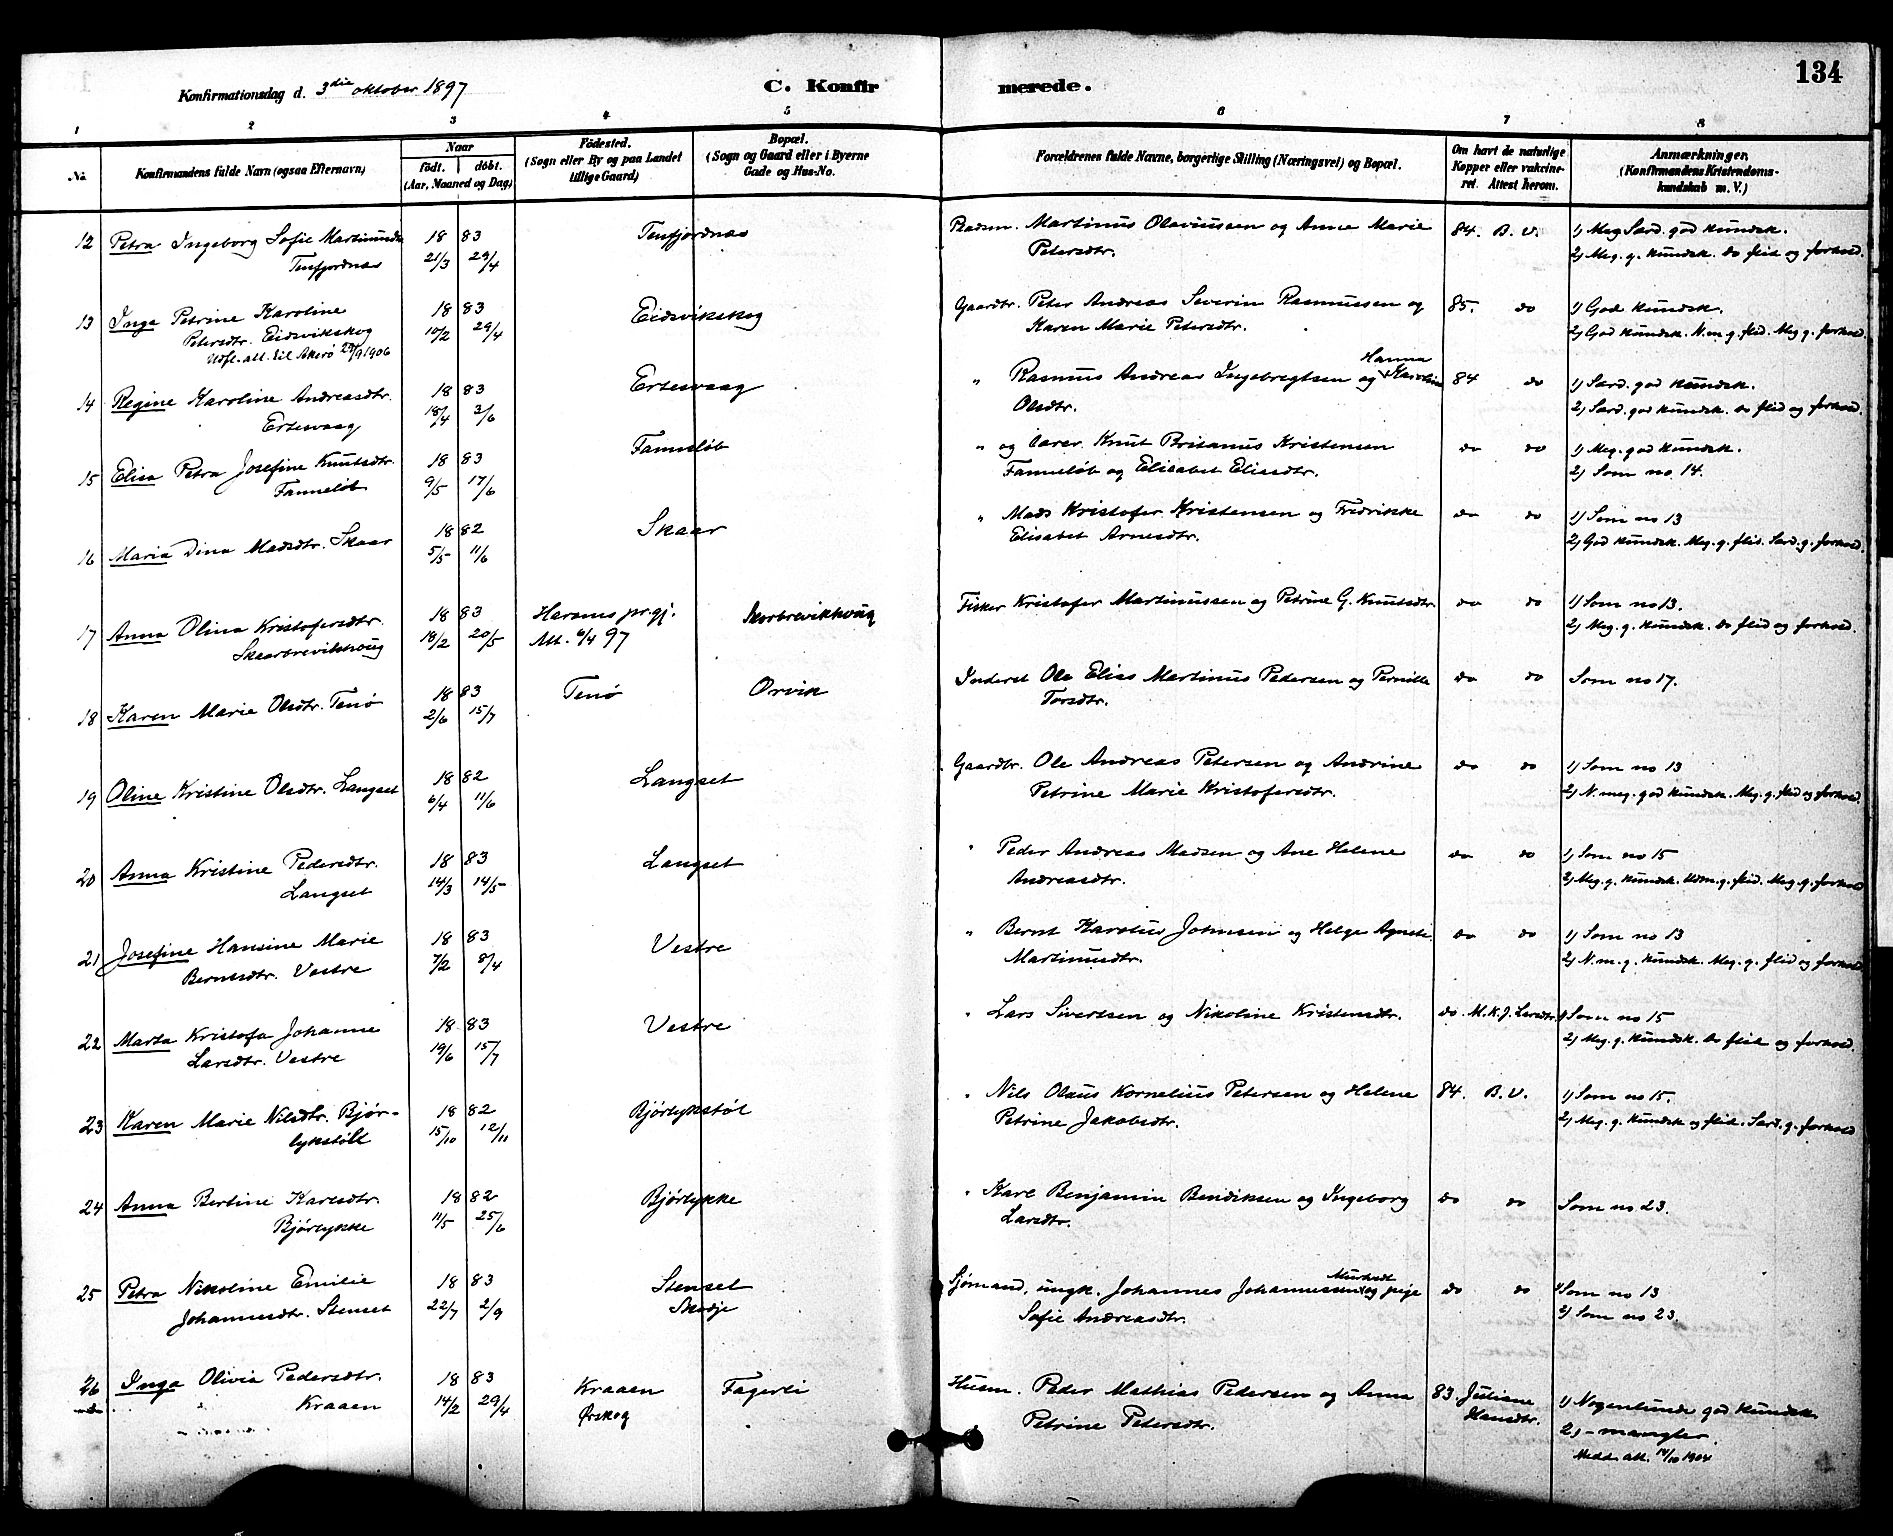 134
Konfirmationsdag d. 3die oktober 1897
C. Konfirmerede.
1 2 3 4 5 6 7 8
No.
Konfirmandens fulde Navn (ogsaa Efternavn)
Naar
födt. döbt.
(Aar, Maaned og Dag)
Födested.
(Sogn eller By og paa Landet
tillige Gaard)
Bopæl.
(Sogn og Gaard eller i Byerne
Gade og Hus-No.
Forældrenes fulde Navne, borgerlige Stilling (Næringsvei) og Bopæl.
Om havt de naturlige
Kopper eller vakcineret. Attest herom.
Anmærkninger.
(Konfirmandens Kristendomskundskab m. V.)
12 Petra Ingeborg Sofie Martinusdtr. 18 83 Tenfjordnæs Martinus Olaviussen og Anne Marie 84. B. V. 1) Meg Særd. god kundsk.
Tenfjordnæs 21/3 29/4 Petersdtr. 2) Meg. g. kundsk. do flid og forhold.
13 Inga Petrine Karoline 18 83 Eidsvikskog Gaardbr. Peter Andreas Severin Rasmussen og 85. do 1) God kundsk.
Petersdtr. Eidsvikskog 10/2 29/4 Karen Marie Petersdtr. 2) God kundsk. N.m.g. flid. Meg g. forhold.
Udfl. att. til Akerø 1906
14 Regine Karoline Andreasdtr. 18 83 Ertesvaag " Rasmus Andreas Ingebregtsen og Hanna Karoline 84 do 1) Særd. god kundsk.
Ertesvaag 18/4 3/6 Olsdtr. 2) Særd. god kundsk. do flid og forhold.
15 Elisa Petra Josefine Knutsdtr. 18 83 Fanneløb " og Knut Britanus Kristensen do do 1) Meg. god kundsk.
Fanneløb 9/5 17/6 Fanneløb og Elisabet Eliasdtr. 2) Som no 14.
16 Maria Dina Madsdtr. Skaar 18 82 Skaar " Mads Kristofer Kristensen og Fredrikke do do 1) Som no 13
5/5 11/6 Elisabet Arnesdtr. 2) God kundsk. Meg. g. flid. Særd. g. forhold.
17 Anna Olina Kristofersdtr. 18 83 Harams pr.gj. Skorbrevikhoug Fisker Kristofer Martinussen og Petrine G. Knutsdtr. do do 1) Som no 13.
Skaarbrevikhoug 18/2 20/5 Att. 6/4 97 2) Meg. g. kundsk. do flid og forhold.
18 Karen Marie Olsdtr. Tenø 18 83 Tenø Orvik Inderst Ole Elias Martinus Pedersen og Pernille do do Som no 17.
2/6 15/7 Torsdtr.
19 Oline Kristine Olsdtr. Langset 18 82 Langset Gaardbr. Ole Andreas Petersen og Andrine do do 1) Som no 13
6/4 11/6 Petrine Marie Kristofersdtr. 2) N. meg. god kundsk. Meg. g. flid og forhold.
20 Anna Kristine Pedersdtr. 18 83 Langset " Peder Andreas Madsen og Ane Helene do do 1) Som no 15
Langset 14/3 14/5 Andreasdtr. 2) Meg. g. kundsk. Udm. g. flid. Meg. g. forhold
21 Josefine Hansine Marie 18 83 Vestre " Bernt Karolus Johnsen og Helga Agnete do do 1) Som no 13
Berntsdtr. Vestre 7/2 8/4 Martinusdtr. 2) N. m. g. kundsk. Meg. g. flid og forhold
22 Marta Kristofa Johanne 18 83 Vestre " Lars Sivertsen og Nikoline Kristensdtr. do M.K.J. Larsdtr. 1) Som no 15
Larsdtr. Vestre 19/6 15/7 2) Meg. g. kundsk. do flid og forhold.
23 Karen Marie Nilsdtr. Bjør- 18 82 Bjørlykstøl " Nils Olaus Kornelius Petersen og Helene 84. B. V. 1) Som no 15.
lykstøll 15/10 12/11 Petrine Jakobsdtr. 2) Meg. g. kundsk og flid. Særd. g. forhold
24 Anna Bertine Karlsdtr. 18 82 Bjørlykke " Karl Benjamin Bendiksen og Ingeborg do do Som no 23.
Bjørlykke 11/5 25/6 Larsdtr.
25 Petra Nikoline Emilie 18 83 Stenset Sjømand, ungk. Johannes Johannessen og pige do do 1) Som no 13
Johannesdtr. Stenset 22/7 2/9 Skodje Sofie Andreasdtr. 2) Som no 23.
26 Inga Olivia Pedersdtr. 18 83 Kraaen Fagerli Husm. Peder Mathias Pedersen og Anna 83. Juliane 1) Nogenlunde god kundsk.
Kraaen 14/2 29/4 Ørskog Petrine Petersdtr. Hansdtr. 2) – mangler.
Medd. att. 14/10 1904